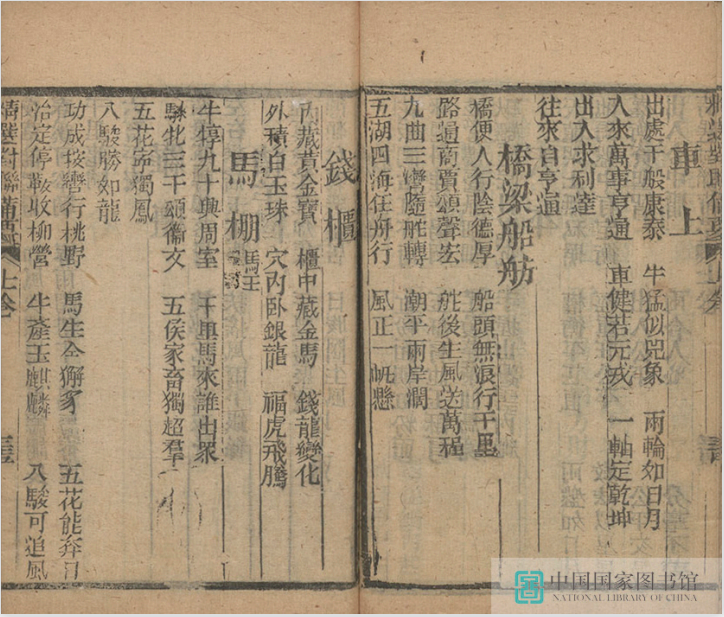 車上
出處千般康泰　牛猛似兕象　兩輪如日月
人來萬事亨通　車健若元戎　一軸定乾坤
出入求利達
往來自亨通
橋梁船舫
橋便人行陰德厚　船頭無浪行千里
路通商賈頌聲宏　舵後生風送萬程
九曲三灣隨舵轉　潮平兩岸濶
五湖四海任舟行　風正一帆懸
上卷
錢櫃
內藏黃金寶　櫃中藏金馬　錢龍變化
外積白玉珠　穴內臥銀龍　福虎飛騰
馬棚
牛犉九十興周室　千里馬來誰出眾
騋牝三千頌衞文　五侯家畜獨超羣
五花奇獨鳳
八駿勝如龍
功成 行桃野　馬生 獬豸　五花能奔日
治定停 收柳營　牛產玉麒麟　八駿可追風
精選對聯備 上卷
中国国家图书馆
NATIONAL LIBRARY OF CHINA